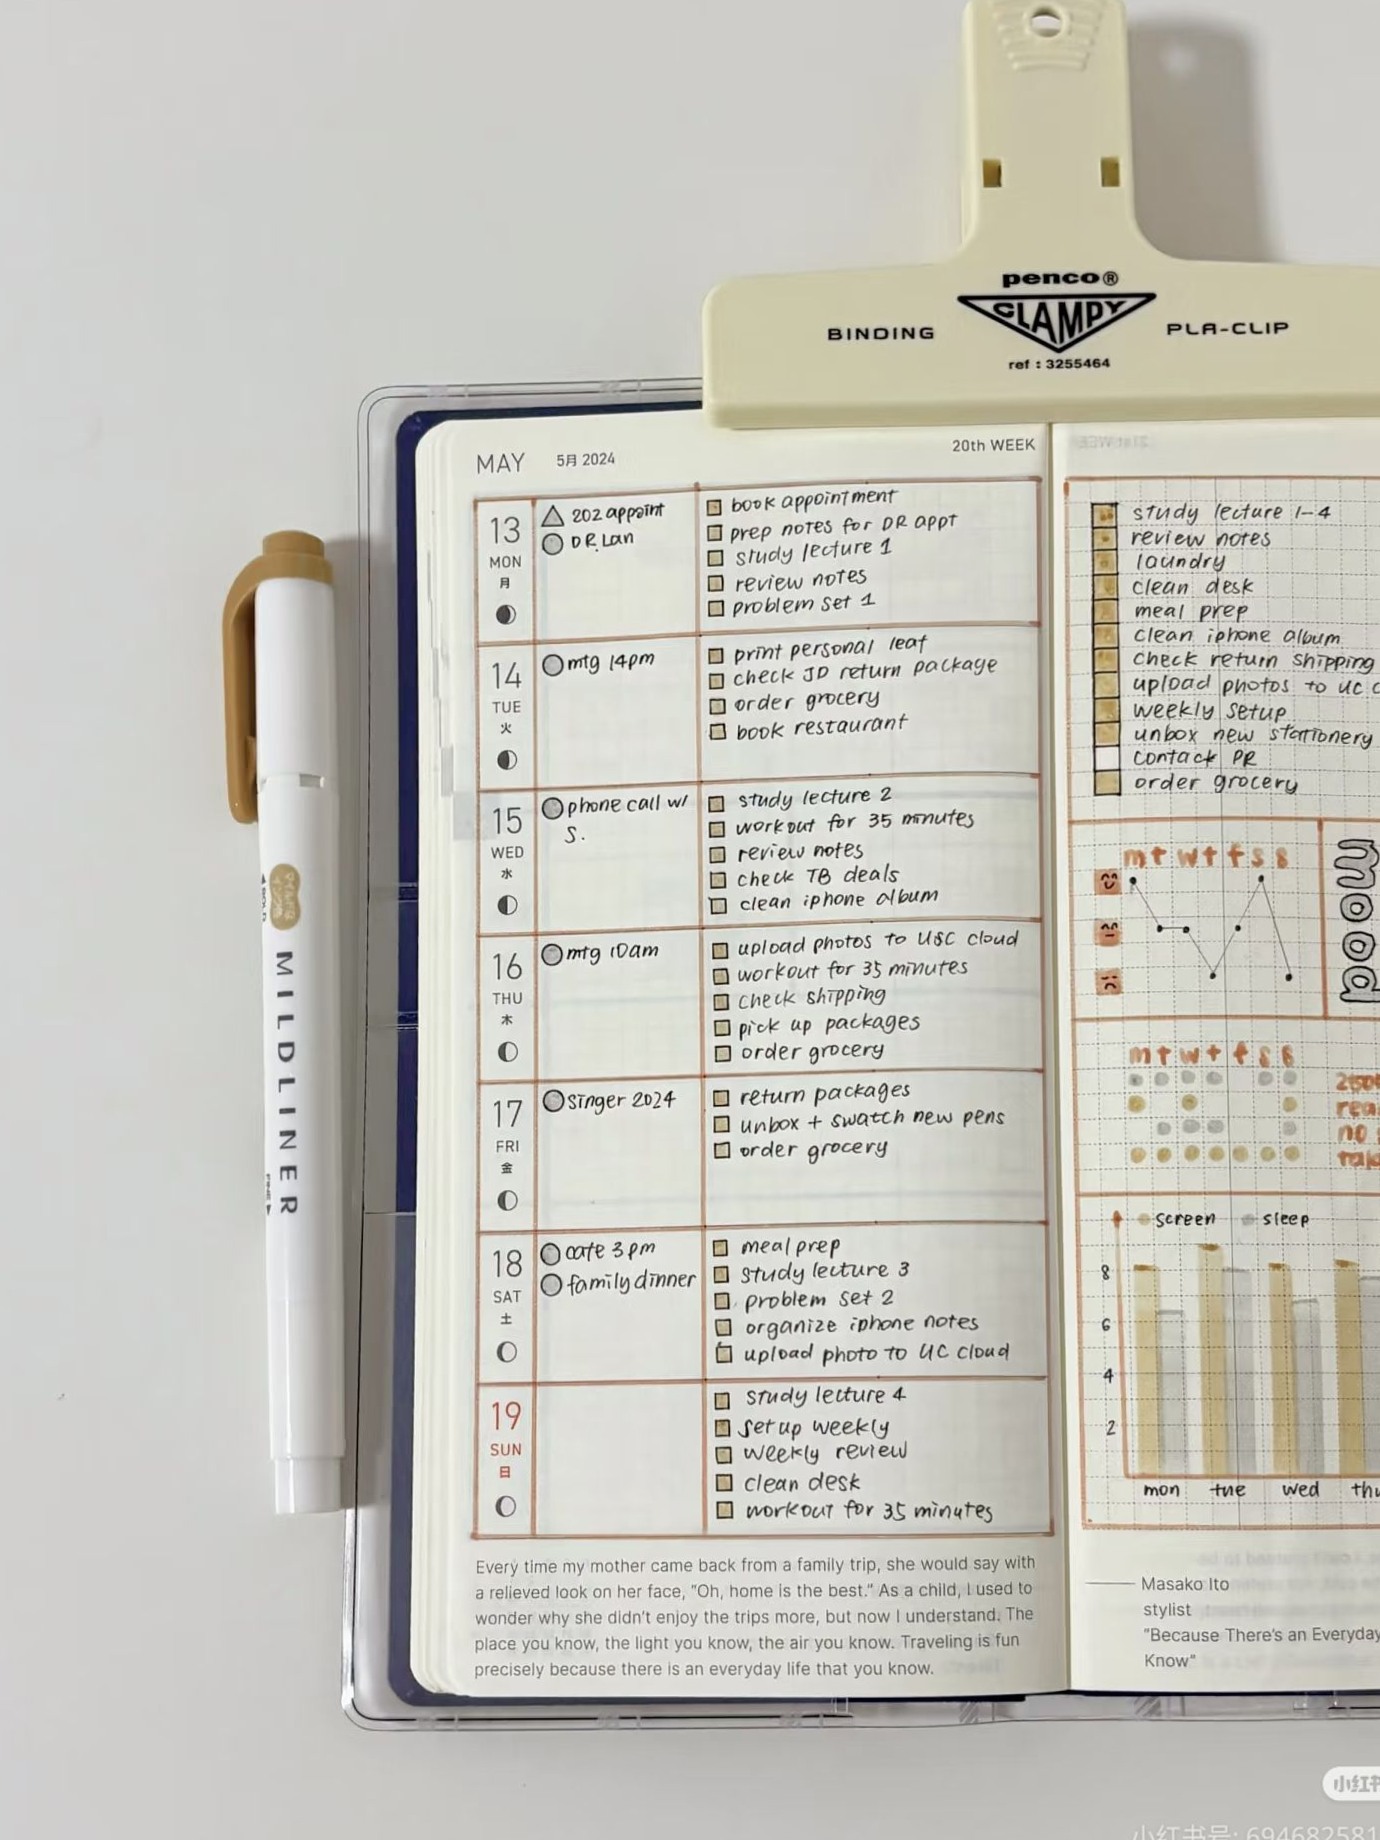 penco®
CLAMPY
BINDING
PLA-CLIP
ref : 3255464
MAY 5月 2024
20th WEEK
13
MON
月
202 appoint
DR. Lan
book appointment
prep notes for DR appt
study lecture 1
review notes
problem set 1
14
TUE
火
mtg 14pm
print personal leaf
check JD return package
order grocery
book restaurant
15
WED
水
phone call w/
S.
study lecture 2
workout for 35 minutes
review notes
check TB deals
clean iphone album
16
THU
木
mtg 10am
upload photos to U&C cloud
workout for 35 minutes
check shipping
pick up packages
order grocery
17
FRI
金
singer 2024
return packages
unbox + swatch new pens
order grocery
18
SAT
土
cafe 3pm
family dinner
meal prep
study lecture 3
problem set 2
organize iphone notes
upload photo to UC cloud
19
SUN
日
study lecture 4
set up weekly
weekly review
clean desk
workout for 35 minutes
Every time my mother came back from a family trip, she would say with
a relieved look on her face, "Oh, home is the best." As a child, I used to
wonder why she didn't enjoy the trips more, but now I understand. The
place you know, the light you know, the air you know. Traveling is fun
precisely because there is an everyday life that you know.
study lecture 1-4
review notes
laundry
clean desk
meal prep
clean iphone album
check return shipping
upload photos to UC
weekly setup
unbox new stationery
contack PR
order grocery
m t w t f s s
mood
m t w t f s s
no
screen sleep
8
6
4
2
mon tue wed thu
Masako Ito
stylist
"Because There's an Everyday
Know"
MILDLINER
BOLD
FINE
小红书
小红书号: 694682581